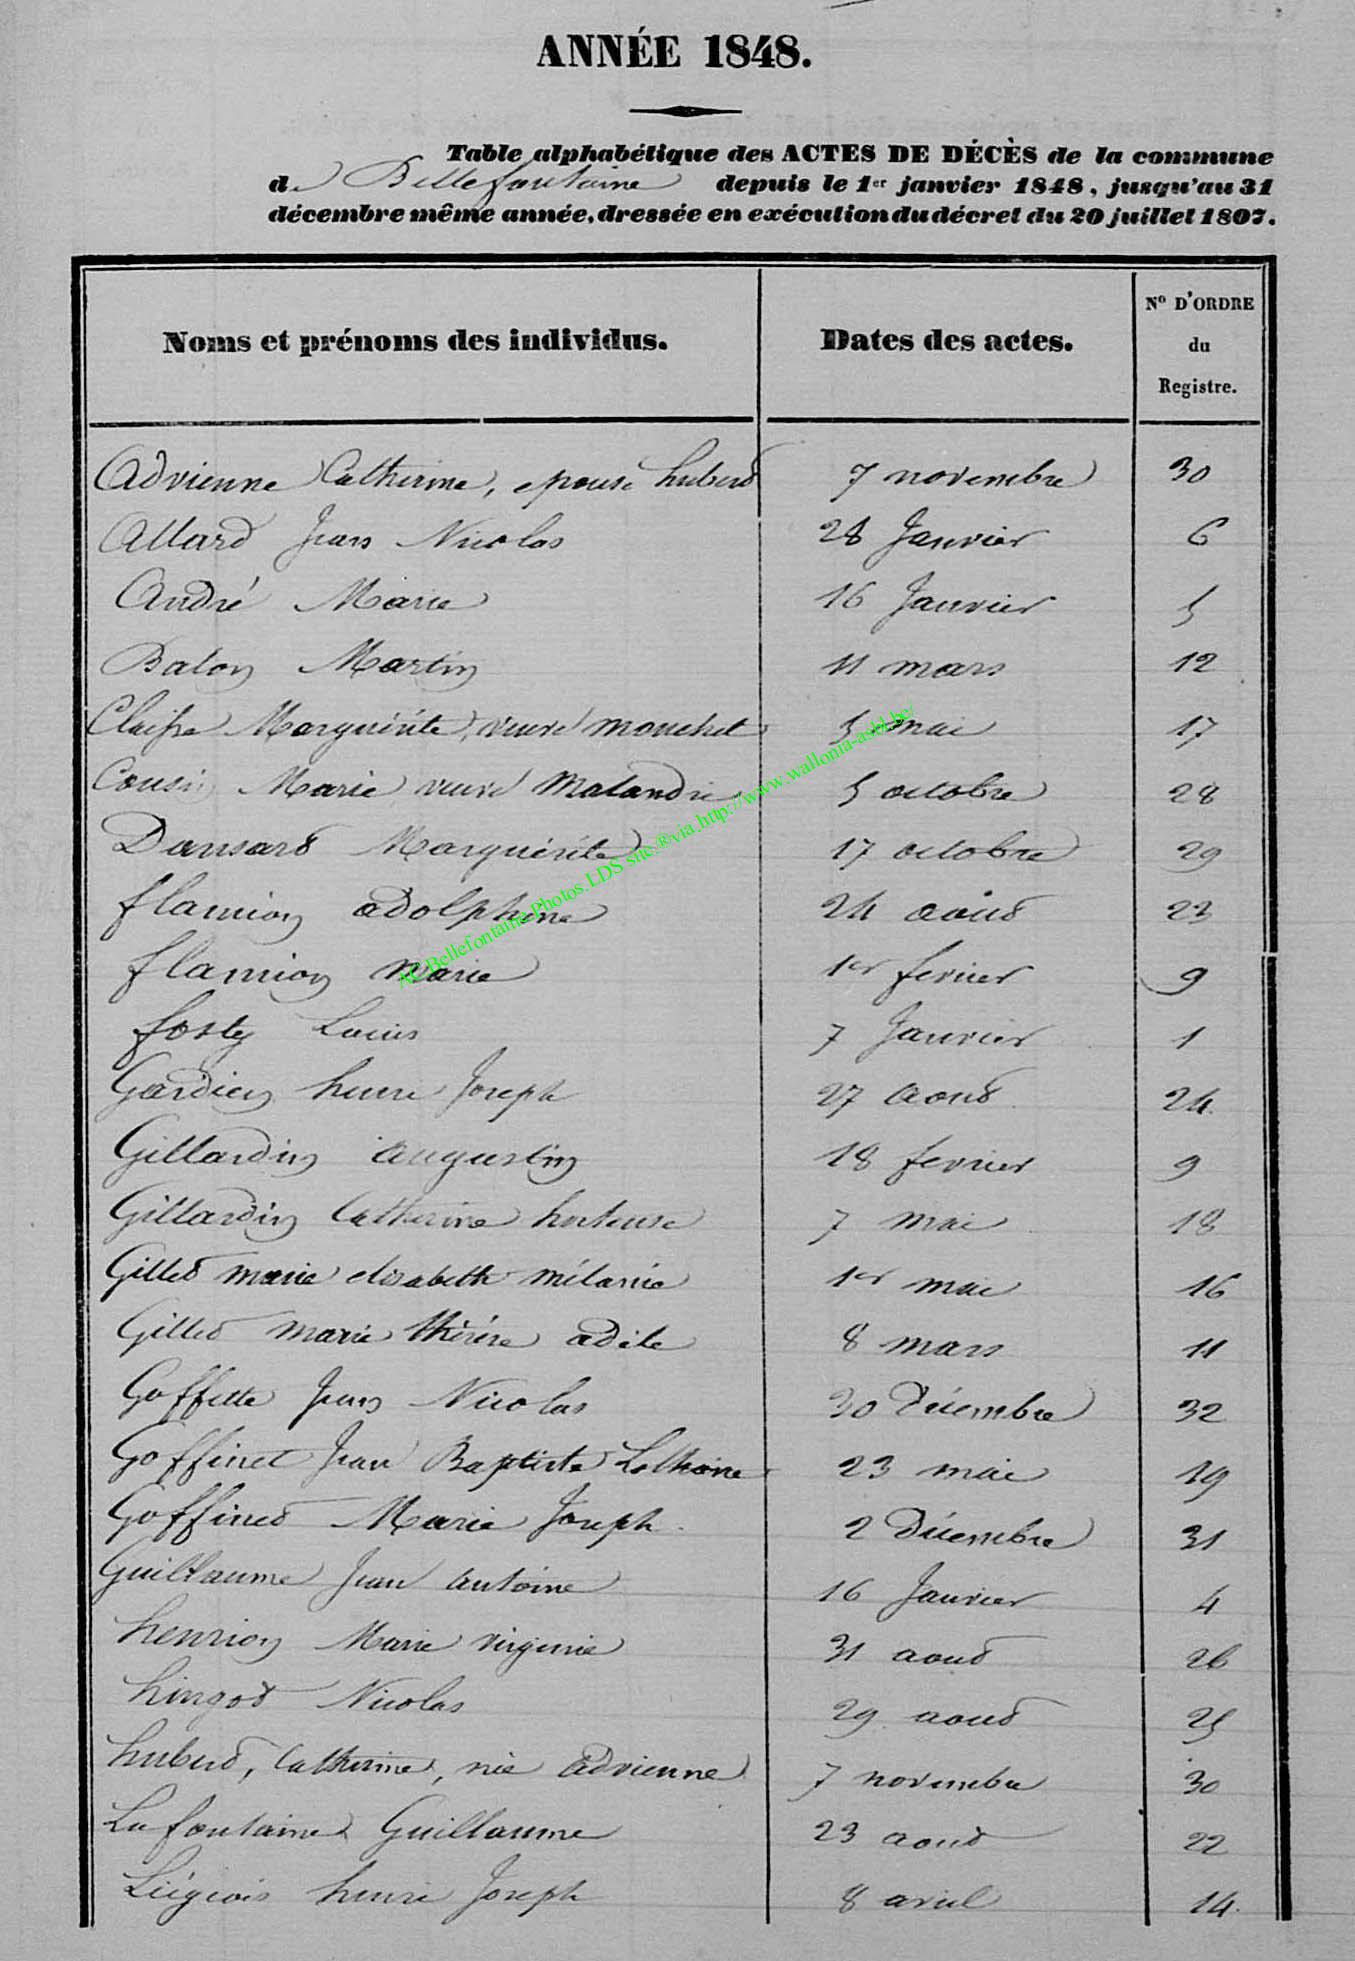 ANNÉE 1848.
Table alphabétique des ACTES DE DÉCÈS de la commune
de Bellefontaine depuis le 1er janvier 1848, jusqu'au 31
décembre même année, dressée en exécution du décret du 20 juillet 1807.
Noms et prénoms des individus. Dates des actes. No D'ORDRE
du
Registre.
Adrienne Catherine, epouse hubert 7 novembre 30
Allard Jean Nicolas 28 Janvier 6
André Marie 16 Janvier 5
Baton Martin 11 mars 12
Claisse Marguérite, veuve mouchet 5 mai 17
Cousin Marie veuve Malandri 5 octobre 28
Dansart Marguérite 17 octobre 29
flamion adolphine 24 août 23
flamion marie 1er fevrier 9
fosty Louis 7 Janvier 1
Gardien henri Joseph 27 aout 24
Gillardin augustin 18 fevrier 9
Gillardin Catherine hortense 7 mai 18
Gillet marie elisabeth mélanie 1er mai 16
Gillet marie thérèse adèle 8 mars 11
Goffette Jean Nicolas 30 Décembre 32
Goffinet Jean Baptiste 23 mai 19
Goffinet Marie Joseph 2 Décembre 31
Guillaume Jean antoine 16 Janvier 4
henrion Marie virginie 31 aout 26
hingot Nicolas 29 aout 25
hubert, Catherine, née adrienne 7 novembre 30
Lafontaine Guillaume 23 aout 22
Liégeois henri Joseph 8 avril 14
AC Bellefontaine.Photos.LDS site.®via.http://www.wallonia-asbl.be/